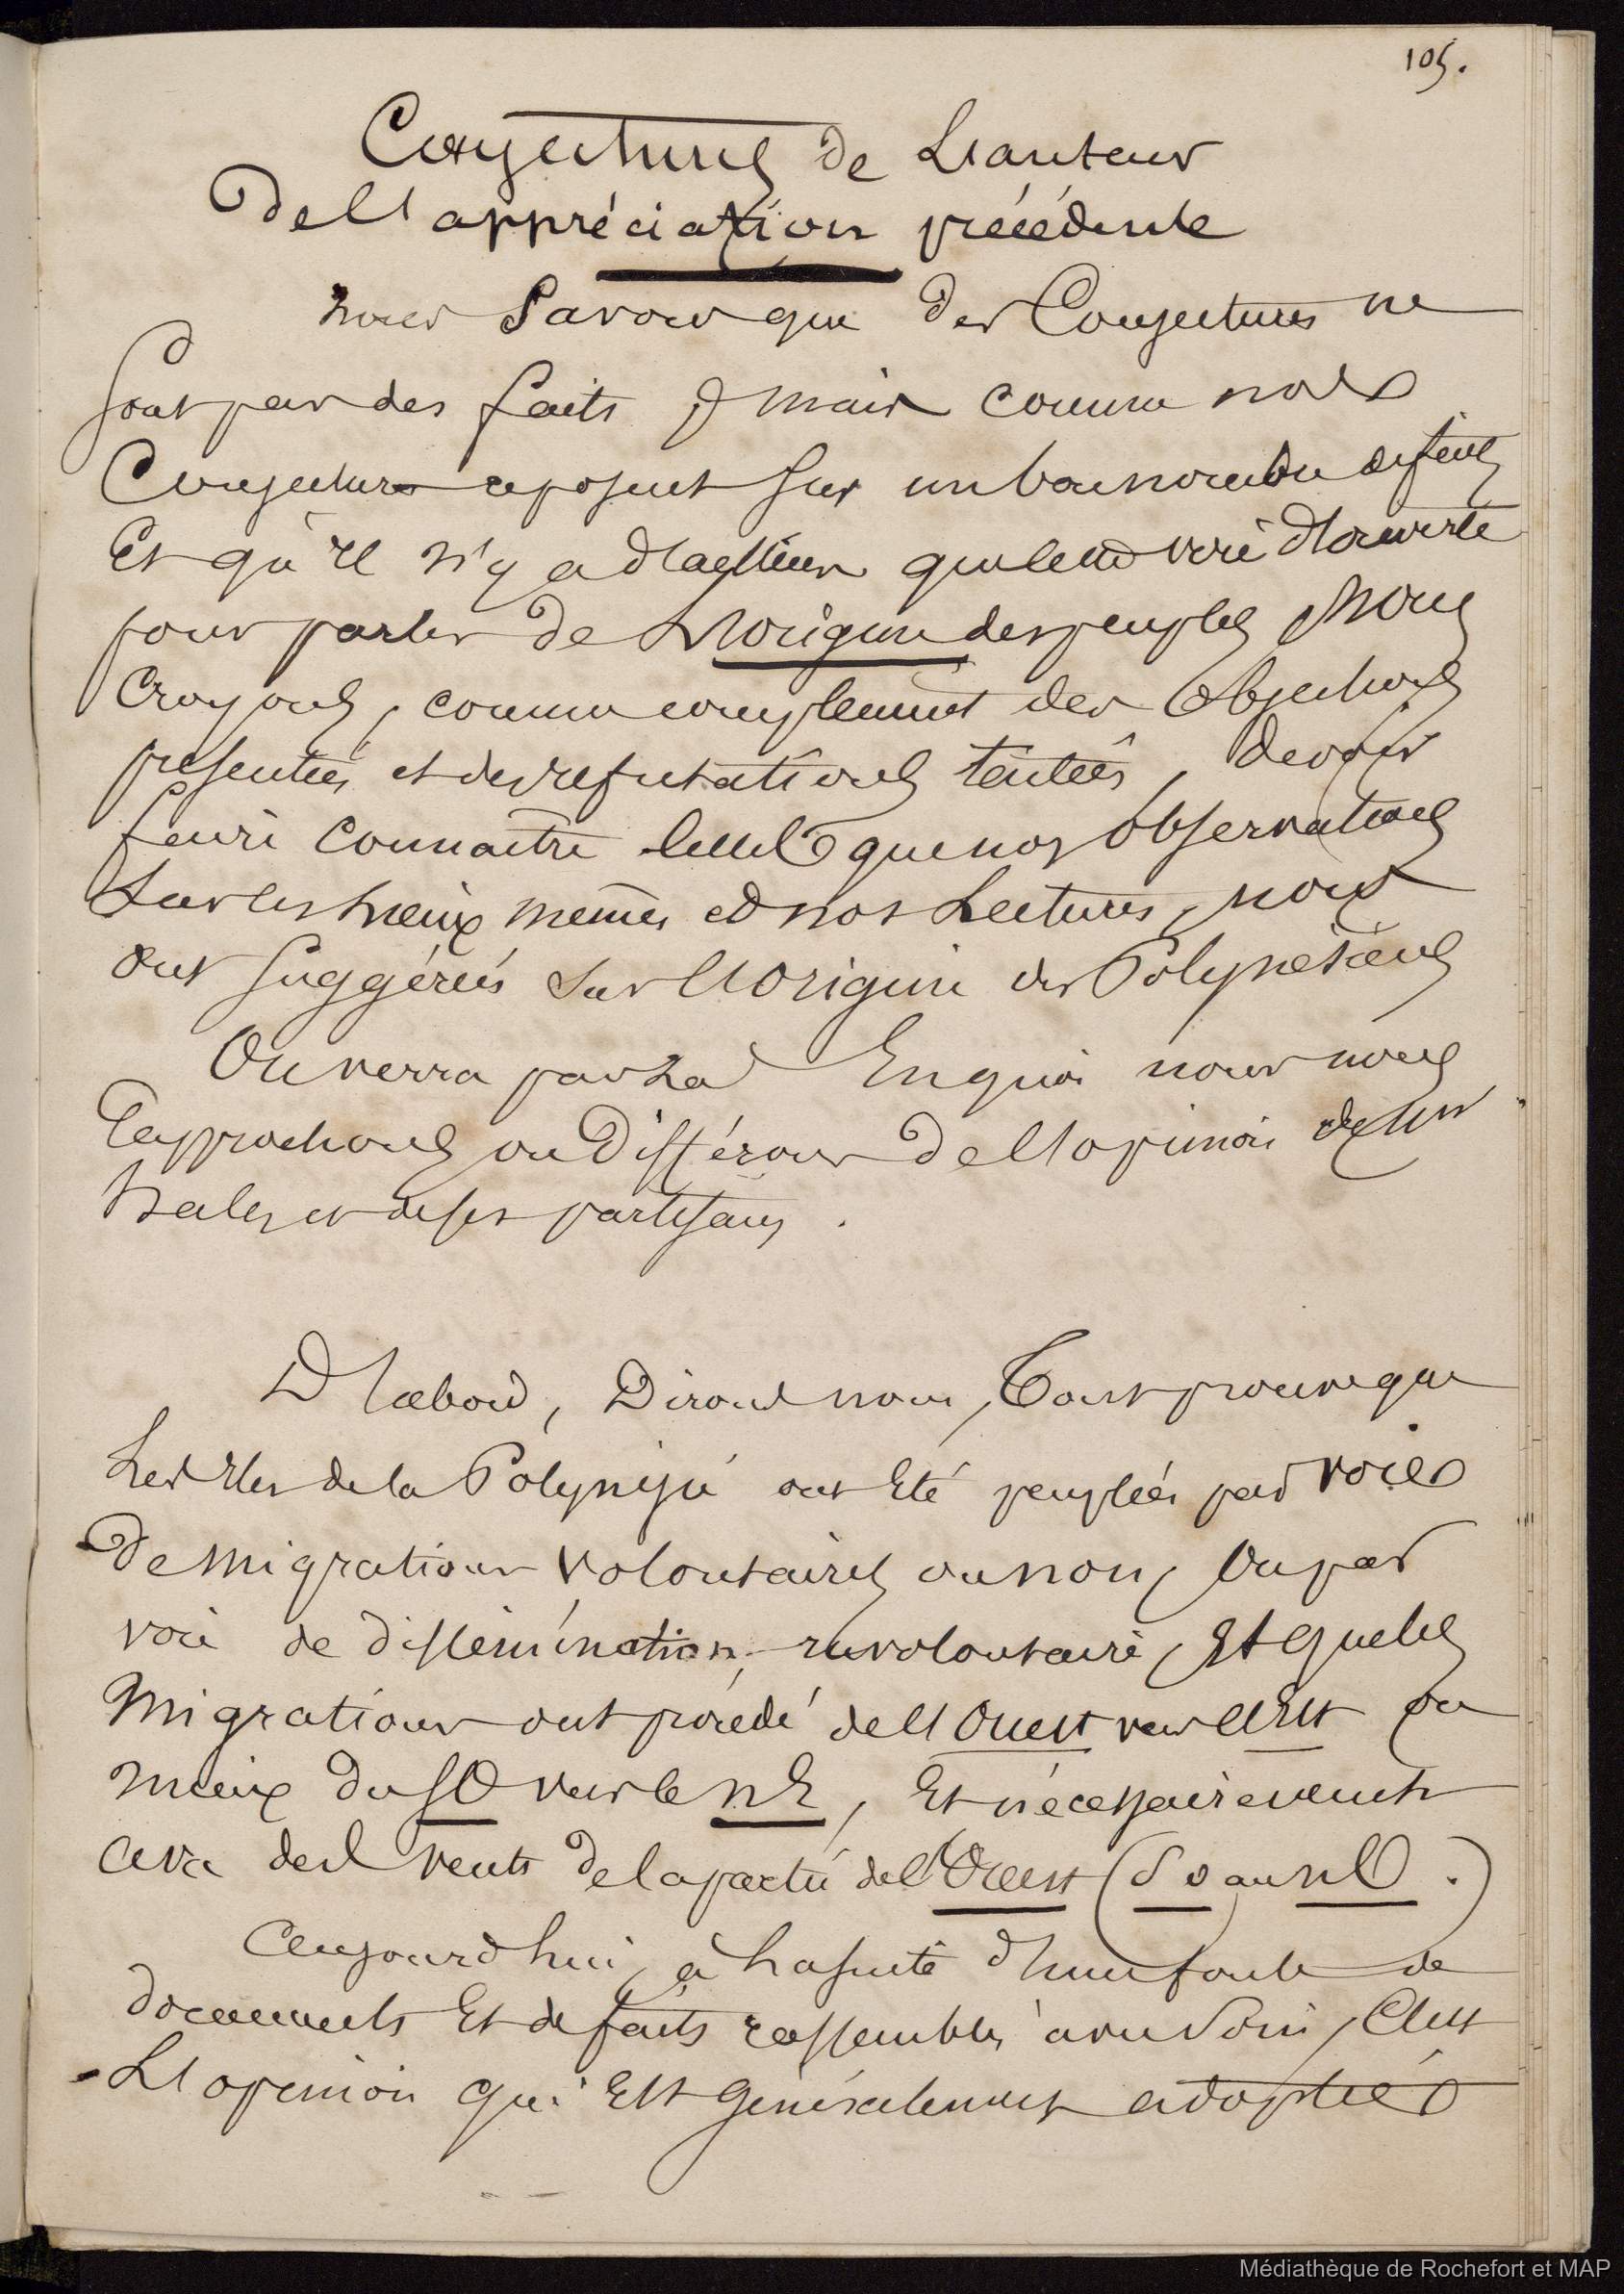 105.
Conjectures de L'auteur
De l'appréciation précédente
nous Savons que des Conjectures ne
Sont pas des faits, mais comme nos
Conjectures reposent Sur un bon nombre de faits
Et qu'il n'y a d'ailleurs que cette voie d'ouverte
pour parler de L'origine des peuples, Nous
Croyons, comme complement des Objections
présentées et des refutations tentées, devoir
faire connaitre celles que nos Observations
Sur les Lieux mêmes et nos Lectures, nous
ont Suggérées Sur l'Origine des Polynésiens
On verra par La En quoi nous nous
Rapprochons ou Différons De l'opinion de Mr
hales et de ses partisans.
D'abord, Dirons nous, Tout prouve que
Les Iles de la Polynésie ont Eté peuplées par voies
De Migrations Volontaires ou non, Ou par
voie de dissémination involontaire, Et que les
Migrations ont procédé de l'Ouest vers l'Est ou
mieux du SO vers le NE, Et nécessairement
avec des vents De la partie de l'Ouest (SO au NO.)
Aujourd'hui, à La suite d'une foule de
documents Et de faits rassemblés avec Soin, C'est
L'opinion qui Est Généralement adoptée
Médiathèque de Rochefort et MAP